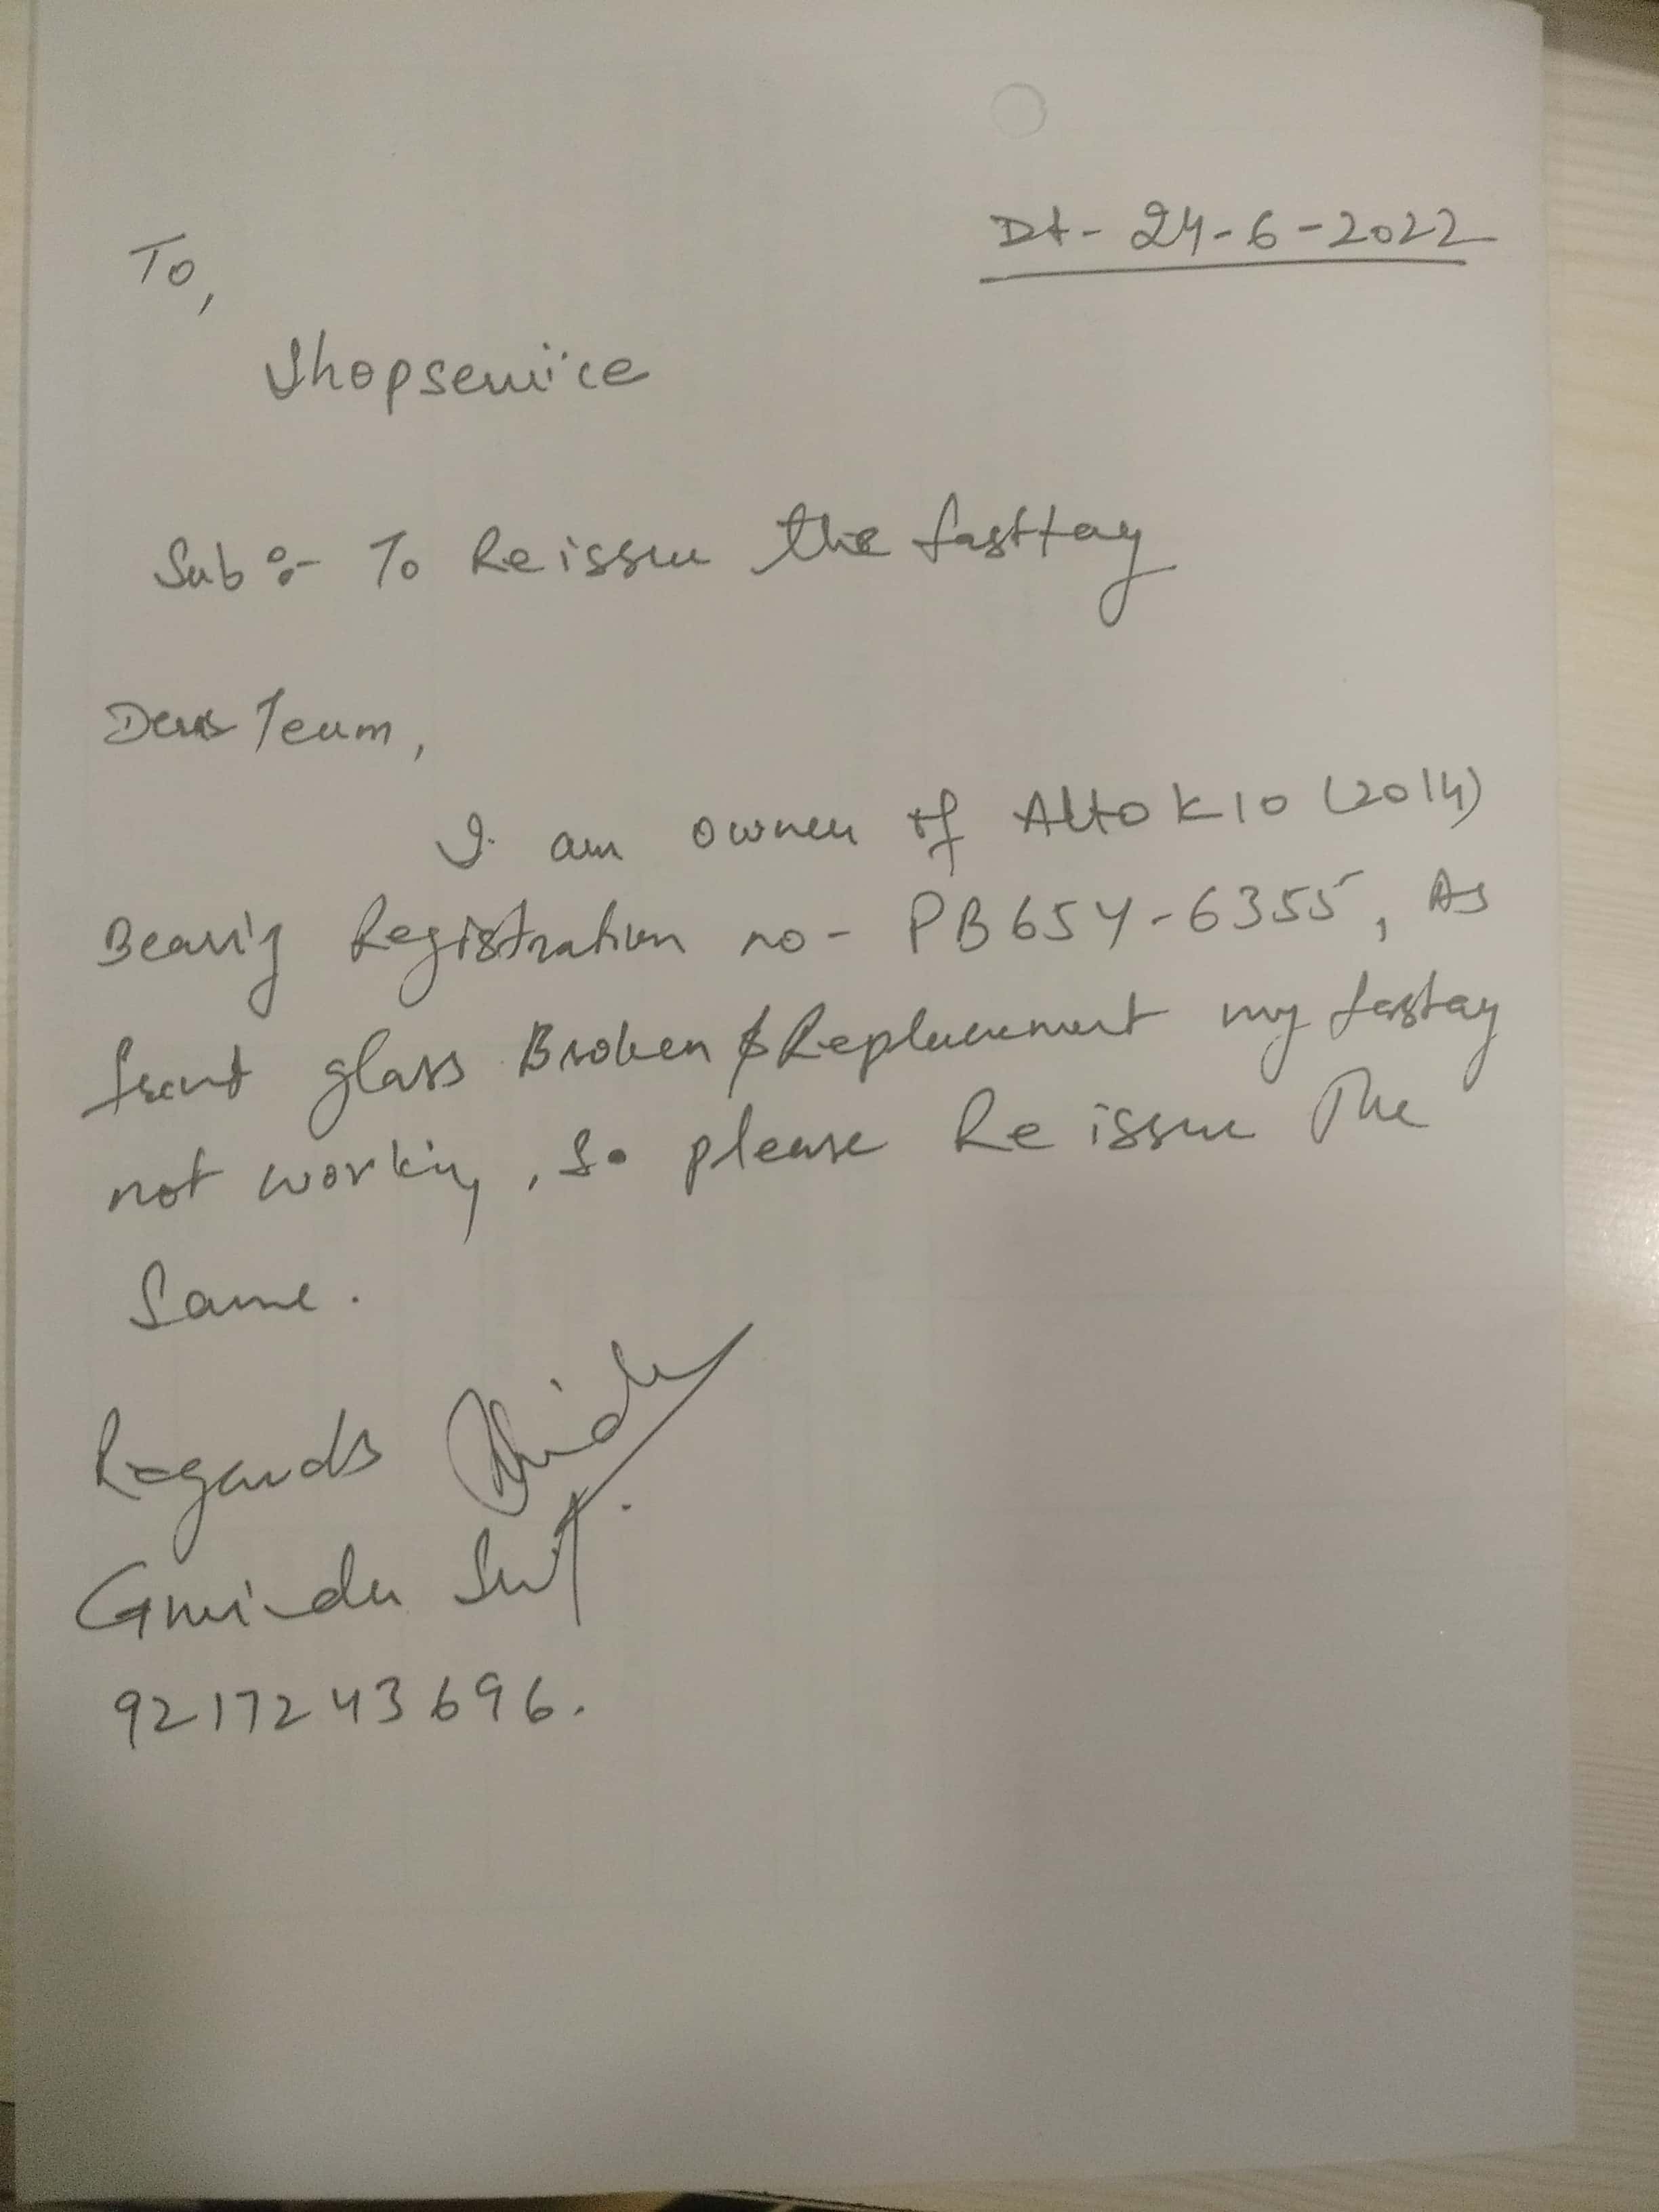 Dt- 24-6-2022
To,
Shopservice
Sub :- To Reissue the fasttag
Dear Team,
I am owner of Alto K10 (2014)
Bearing Registration no- PB65Y-6355, As
front glass Broken & Replacement my fastag
not working, So please Re issue The
Same.
Regards
92172 43696.